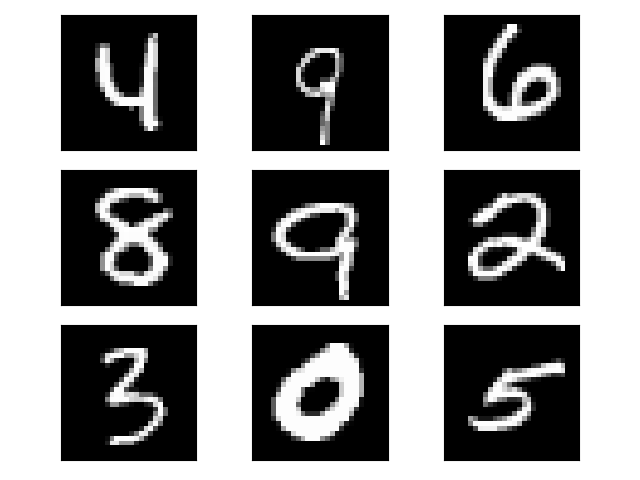 4 9 6
8 9 2
3 0 5